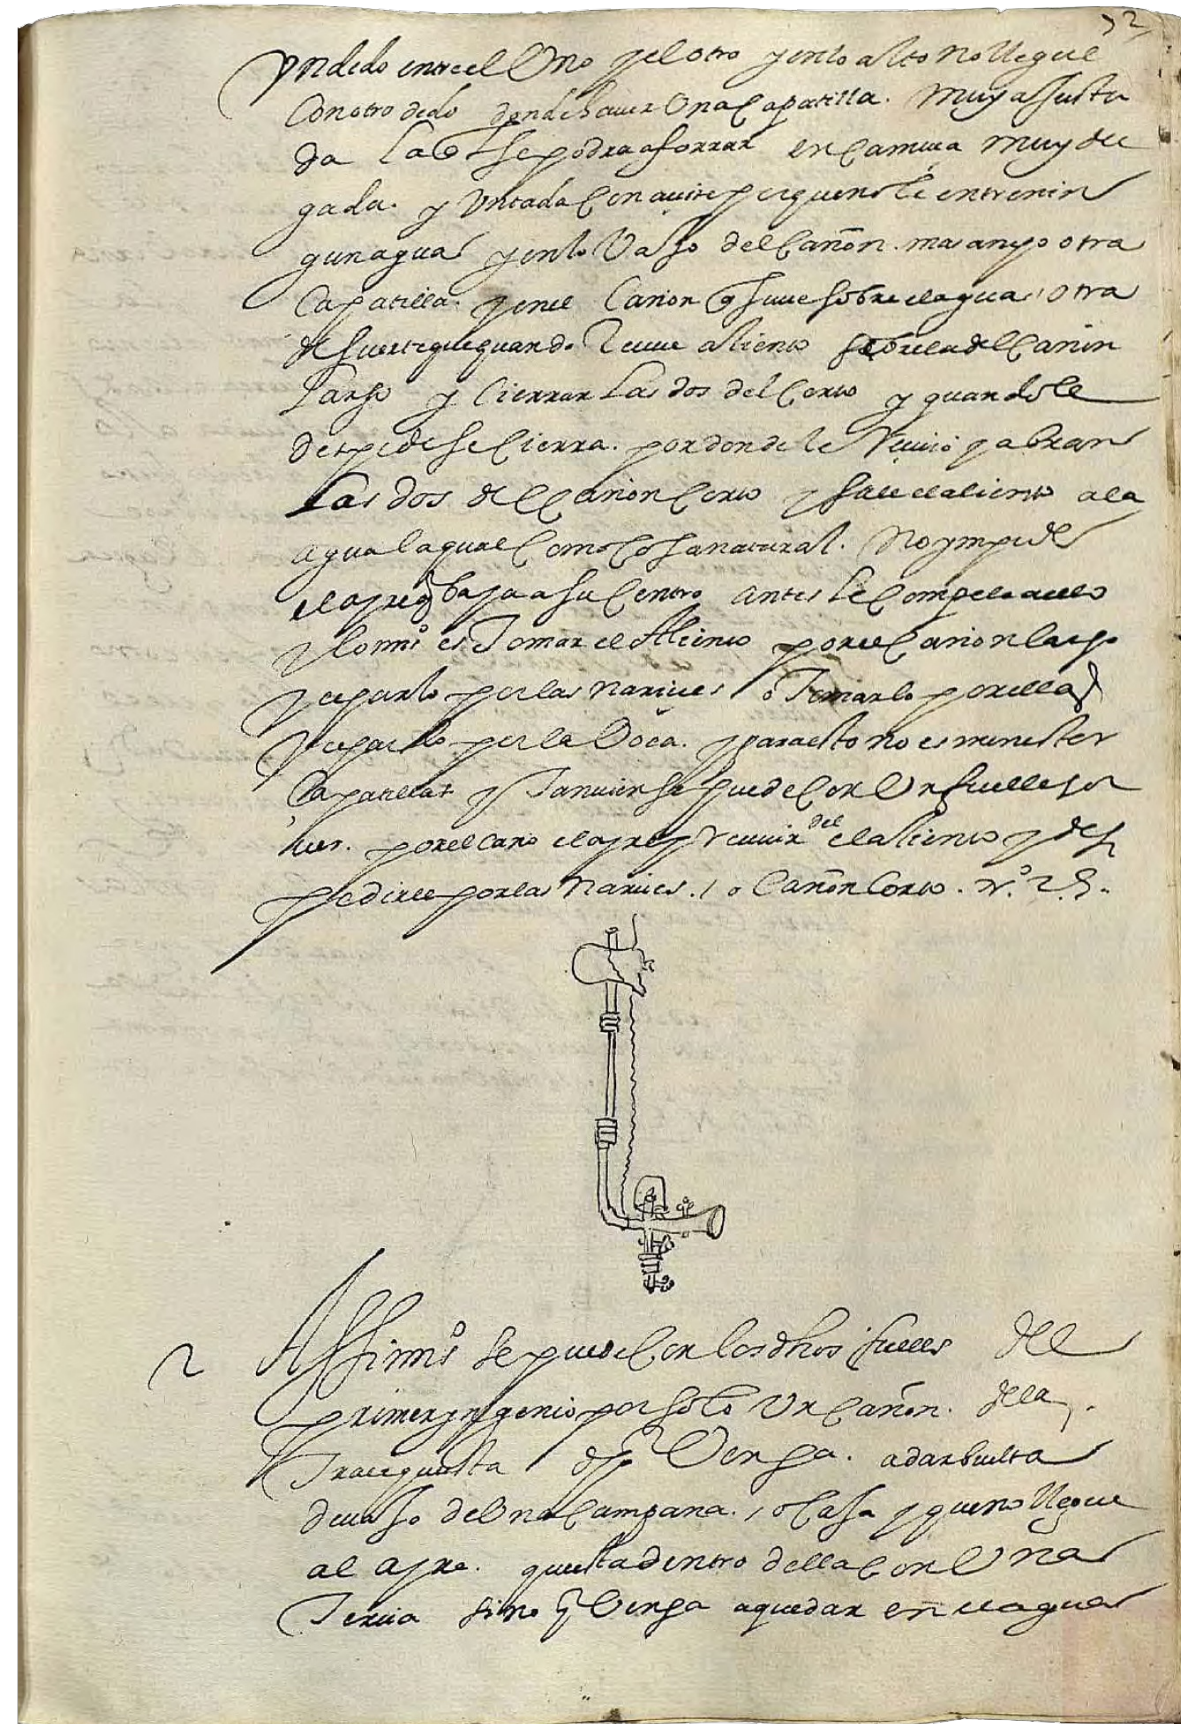 32
Un dedo entre el Uno y el otro y en lo alto no llegue
Con otro dedo donde haver Una Capatilla. Muy ajusta
da la q se podra aforrar en Camuça muy del
gada. y Untada Con açite porque no le entre nin
gun agua y en lo Vaso del Cañon. mas anejo otra
Capatilla. y en el Canon q suue sobre el agua, otra
de suerte que quando Reciue aliento se abre la del Cañon
Largo y Cierran las dos del Corto y quando le
despide se Cierra. por donde le Reciuio y abran
las dos del Canon Corto y sale el aliento a la
agua la qual Como Cosa natural. No ympide
el ayre q baja a su Centro antes le Compele a ello
y lo mismo es Tomar el Aliento por el Canon largo
y echarlo por las narices o Tomarlo por ellas
y echarlo por la Voca. y para esto no es menester
Capatillas y Tanuien se puede Con Un fuelle
por el cano el ayre y Reciuir del el aliento y des
pedirle por las narices. / o Cañon Corto. N.º 25.
2 Assi mº se puede Con los dhos fuelles del
primer yngenio por solo Un Cañon. de la
Traça questa de Venga. a dar buelta
deuaso de Una Campana. / o Casa y que no llegue
al ayre. questa dentro della Con Una
Tercia sino q Venga a quedar en el agua